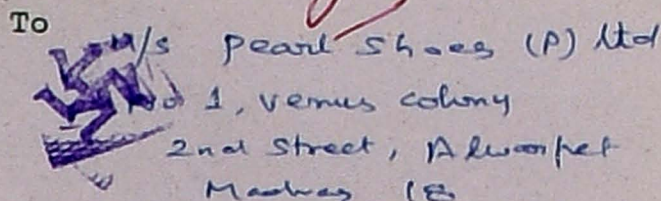 To
M/s Pearl Shoes (P) Ltd
No 1, Venus colony
2nd Street, Alwarpet
Madras 18